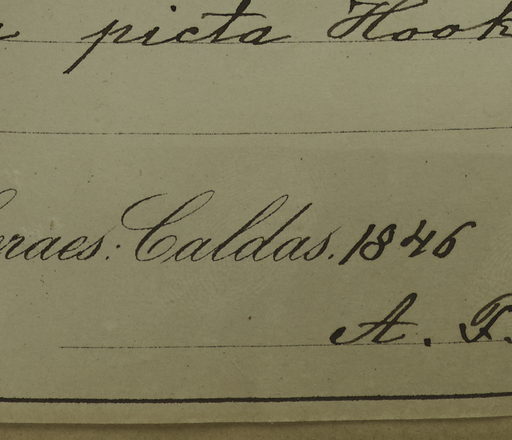 picta Hook
raes: Caldas. 1846
A. F.